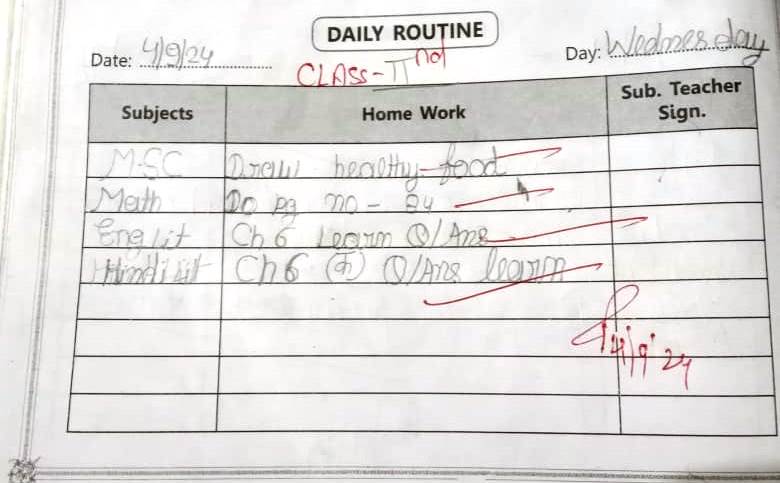 DAILY ROUTINE
Date: 4/9/24 Day: Wednesday
CLASS-II nd
Subjects Home Work Sub. Teacher Sign.
M.SC Draw healthy food
Math Do pg no - 84
Eng lit Ch 6 Learn Q/Ans
Hindi lit Ch 6 (क) Q/Ans learn
4/9/24